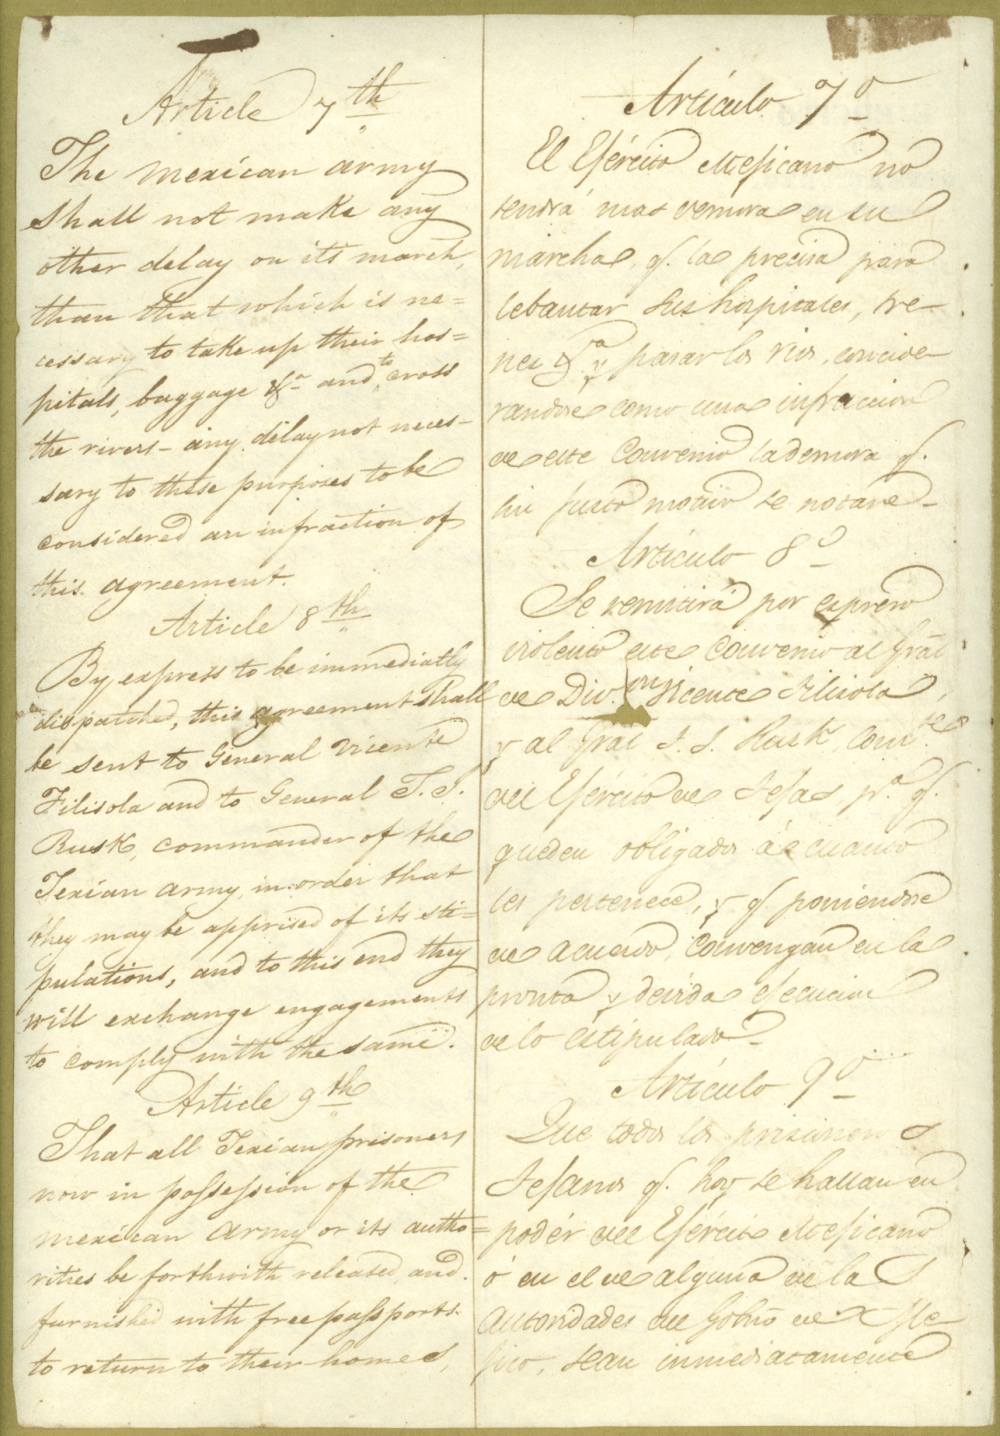 Article 7th
The Mexican army
shall not make any
other delay on its march,
than that which is ne=
cessary to take up their hos=
pitals, baggage &a and to cross
the rivers - any delay not neces-
sary to these purposes to be
considered an infraction of
this agreement.
Article 8th
By express to be immediatly
dispatched, this agreement shall
be sent to General Vicente
Filisola and to General T. J.
Rusk, commander of the
Texian army, in order that
they may be apprised of its sti=
pulations, and to this end they
will exchange engagements
to comply with the same.
Article 9th
That all Texian prisoners
now in possession of the
Mexican Army or its autho=
rities be forthwith released and
furnished with free passports
to return to their homes,
Artículo 7o
El Ejército Mejicano no
tendrá mas demora en su
marcha, q. la precisa para
lebantar sus hospitales, tre-
nes &a y pasar los rios, concide-
randose como una infraccion
de este Convenio la demora q.
sin justo motivo se notare-
Artículo 8o
Se remitirá por expreso
violento este Convenio al Gral
de Divon Vicente Filisola,
y al Gral T. J. Rusk, Comte
del Ejército de Tejas pa q.
queden obligados á cuanto
les pertenece, y q. poniendose
de acuerdo, Convengan en la
pronta y devida ejecucion
de lo estipulado-
Artículo 9o
Que todos los prisioneros
Tejanos q. hoy se hallan en
podér del Ejército Mejicano
ó en el de alguna de las
Autoridades del Gobno de Me-
jico, sean inmediatamente